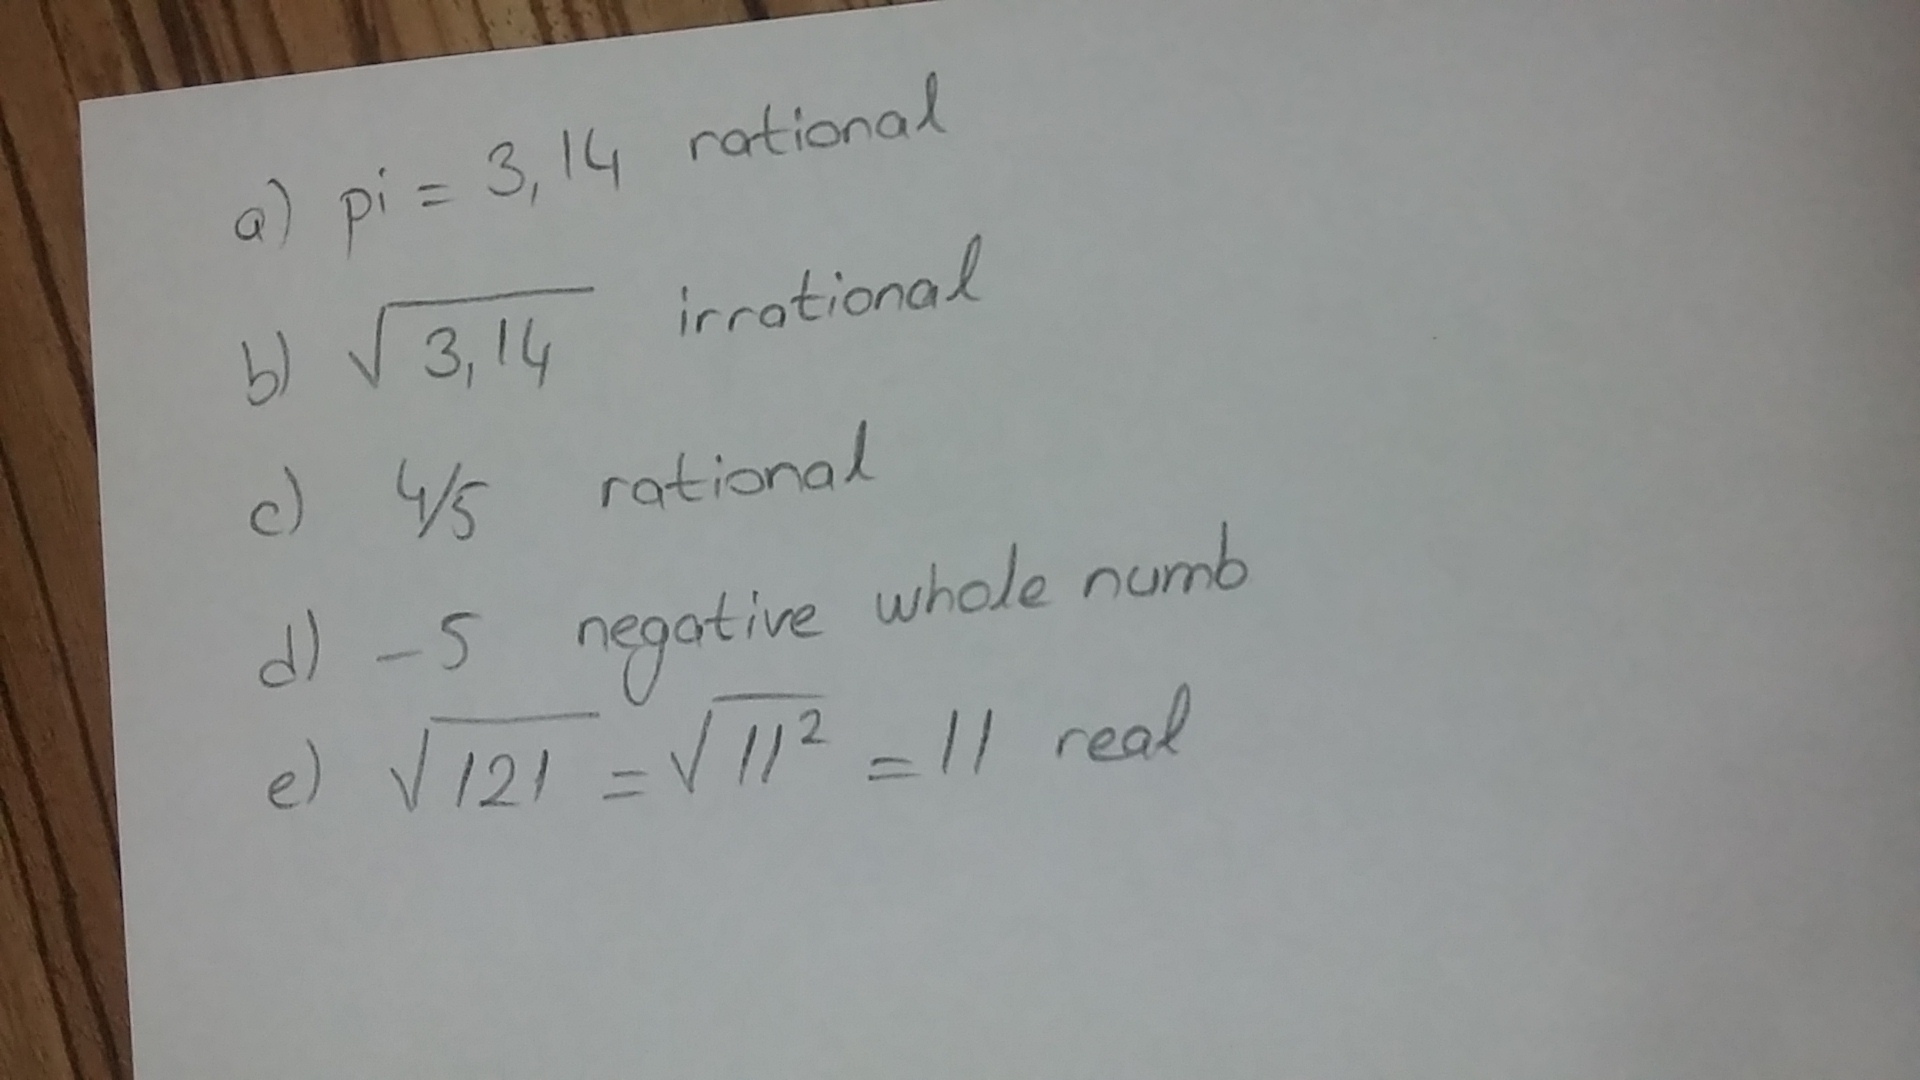 a) pi = 3,14 rational
b) √3,14 irrational
c) 4/5 rational
d) -5 negative whole numb
e) √121 = √11² = 11 real